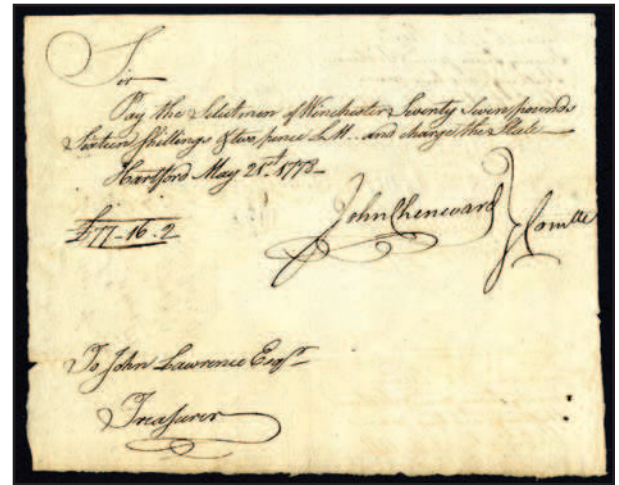 Sir
Pay the Selectmen of Winchester Seventy Seven pounds
Sixteen Shillings & two pence L.M. and charge the State
Hartford May 21st 1778
£77-16.2
John Chenevard } Comtte
To John Lawrence Esqr
Treasurer